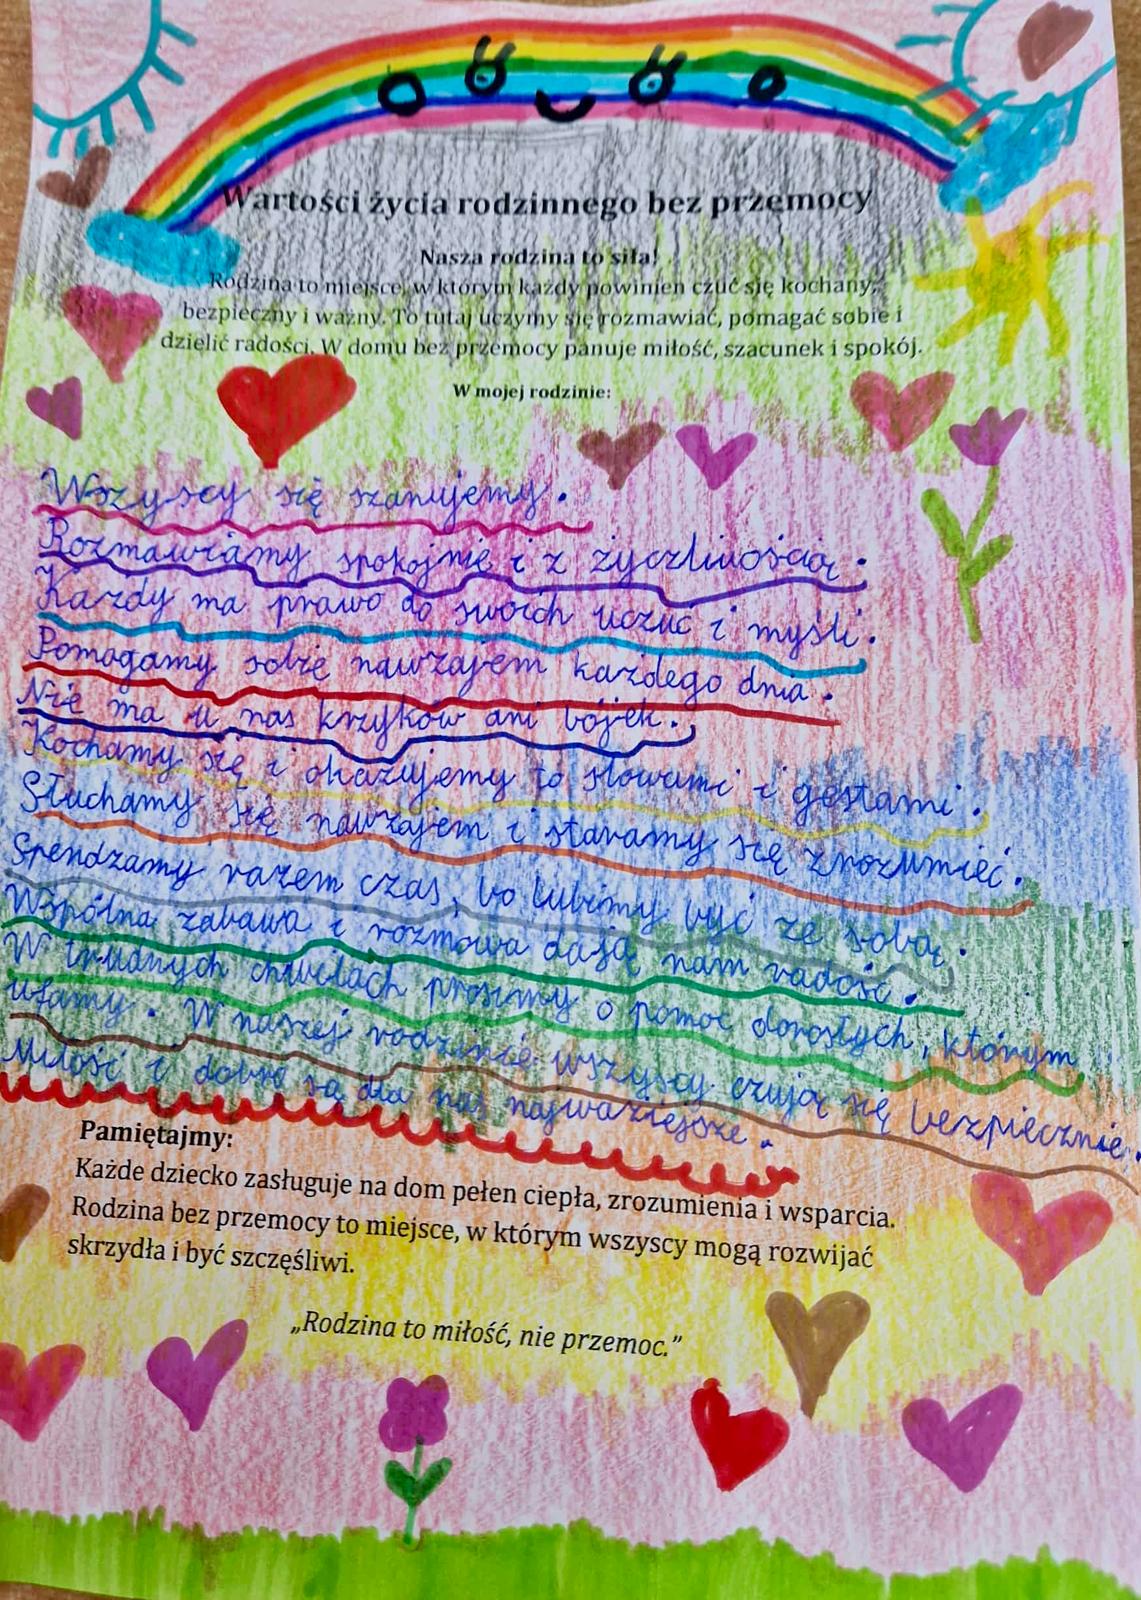 Wartości życia rodzinnego bez przemocy
Nasza rodzina to siła!
Rodzina to miejsce, w którym każdy powinien czuć się kochany,
bezpieczny i ważny. To tutaj uczymy się rozmawiać, pomagać sobie i
dzielić radości. W domu bez przemocy panuje miłość, szacunek i spokój.
W mojej rodzinie:
Wszyscy się szanujemy.
Rozmawiamy spokojnie i z życzliwością.
Każdy ma prawo do swoich uczuć i myśli.
Pomagamy sobie nawzajem każdego dnia.
Nie ma u nas krzyków ani bójek.
Kochamy się i okazujemy to słowami i gestami.
Słuchamy się nawzajem i staramy się zrozumieć.
Spendzamy razem czas, bo lubimy być ze sobą.
Wspólna zabawa i rozmowa dają nam radość.
W trudnych chwilach prosimy o pomoc dorosłych, którym
ufamy. W naszej rodzinie wszyscy czują się bezpiecznie.
Miłość i dobro są dla nas najważniejsze.
Pamiętajmy:
Każde dziecko zasługuje na dom pełen ciepła, zrozumienia i wsparcia.
Rodzina bez przemocy to miejsce, w którym wszyscy mogą rozwijać
skrzydła i być szczęśliwi.
„Rodzina to miłość, nie przemoc.”